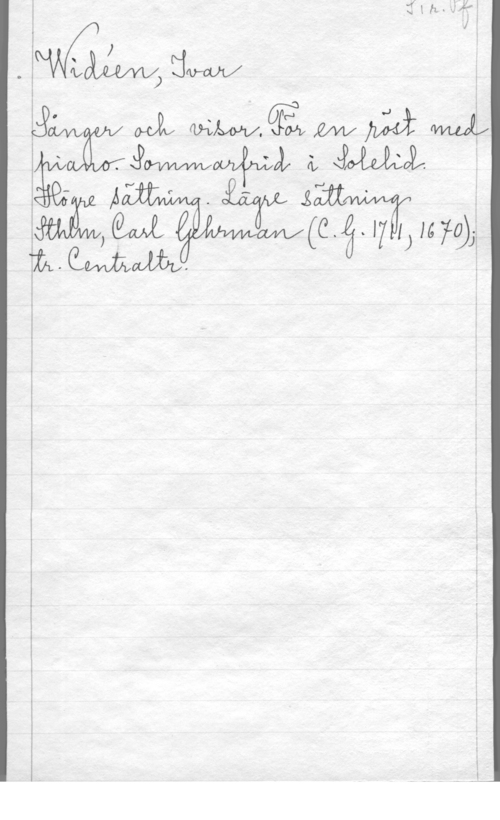 Widéen, Ivar
Sånger och visor. För en röst med
piano. Sommarfrid i Solelid.
Högre sättning. Lägre sättning
Sthlm, Carl Gehrman (C. G. 1711, 1670);
tr. Centraltr.